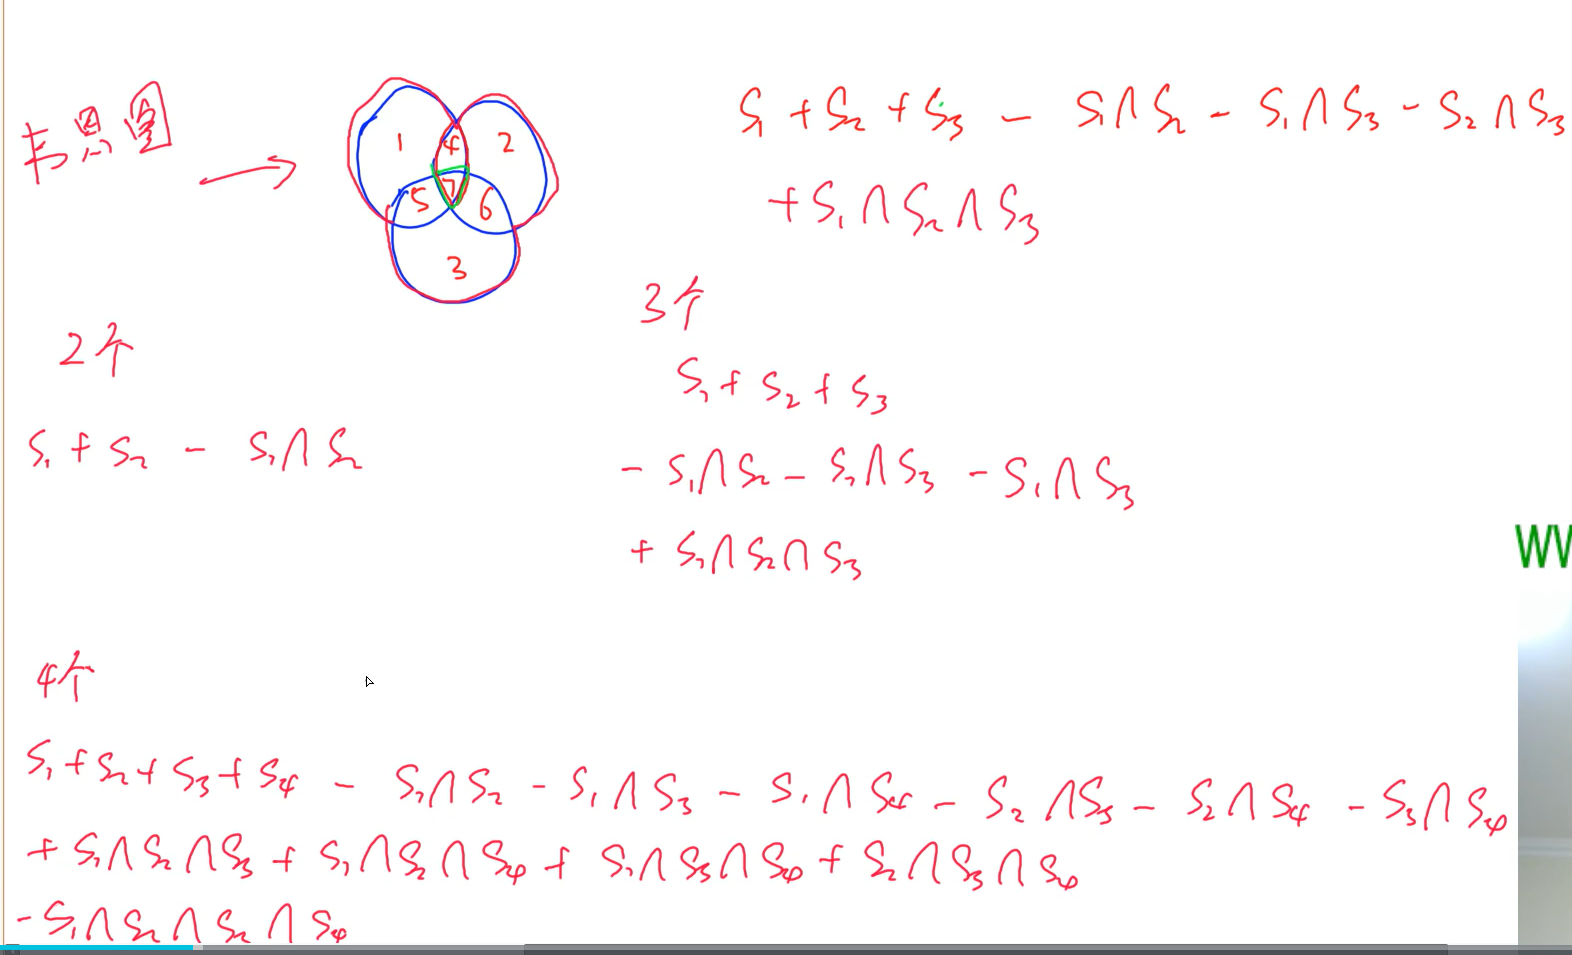 韦恩图
1 4 2
5 7 6
3
S₁ + S₂ + S₃ - S₁∩S₂ - S₁∩S₃ - S₂∩S₃
+ S₁∩S₂∩S₃
2个
S₁ + S₂ - S₁∩S₂
3个
S₁ + S₂ + S₃
- S₁∩S₂ - S₂∩S₃ - S₁∩S₃
+ S₁∩S₂∩S₃
4个
S₁ + S₂ + S₃ + S₄ - S₁∩S₂ - S₁∩S₃ - S₁∩S₄ - S₂∩S₃ - S₂∩S₄ - S₃∩S₄
+ S₁∩S₂∩S₃ + S₁∩S₂∩S₄ + S₁∩S₃∩S₄ + S₂∩S₃∩S₄
- S₁∩S₂∩S₂∩S₄